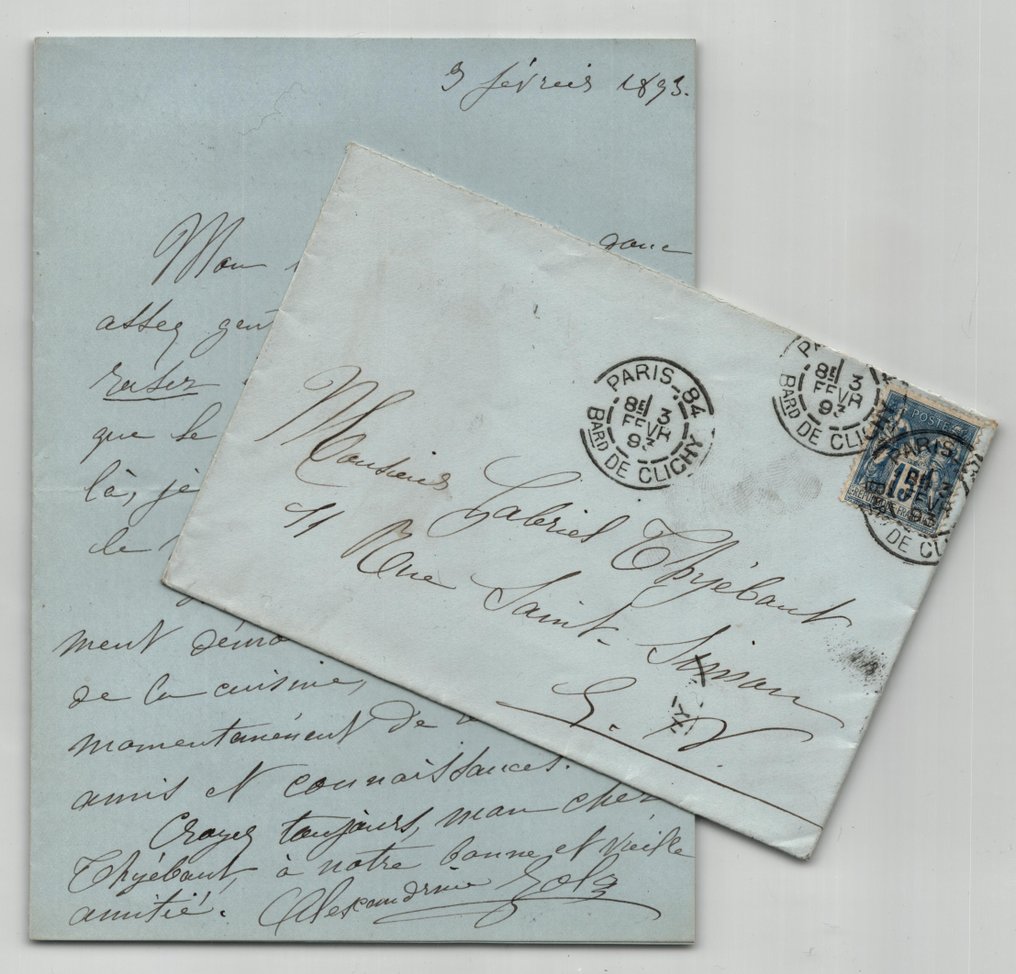 3 février 1893.
Mon
donc
assez gent
raser
que le
là, je
de
ment démo
de la cuisine,
momentanément de
amis et connaissances.
Croyez toujours, mon cher
Thyébaut, à notre bonne et vieille
amitié. Alexandrine Zola
Monsieur Gabriel Thyébaut
11 Rue Saint-Simon
E. V.
PARIS_84
8E 3
FEVR
93
BARD DE CLICHY
PA
8E 3
FEVR
93
BARD DE CLICHY
POSTE
15
PARIS_
8E 3
FEVR
93
DE CLI